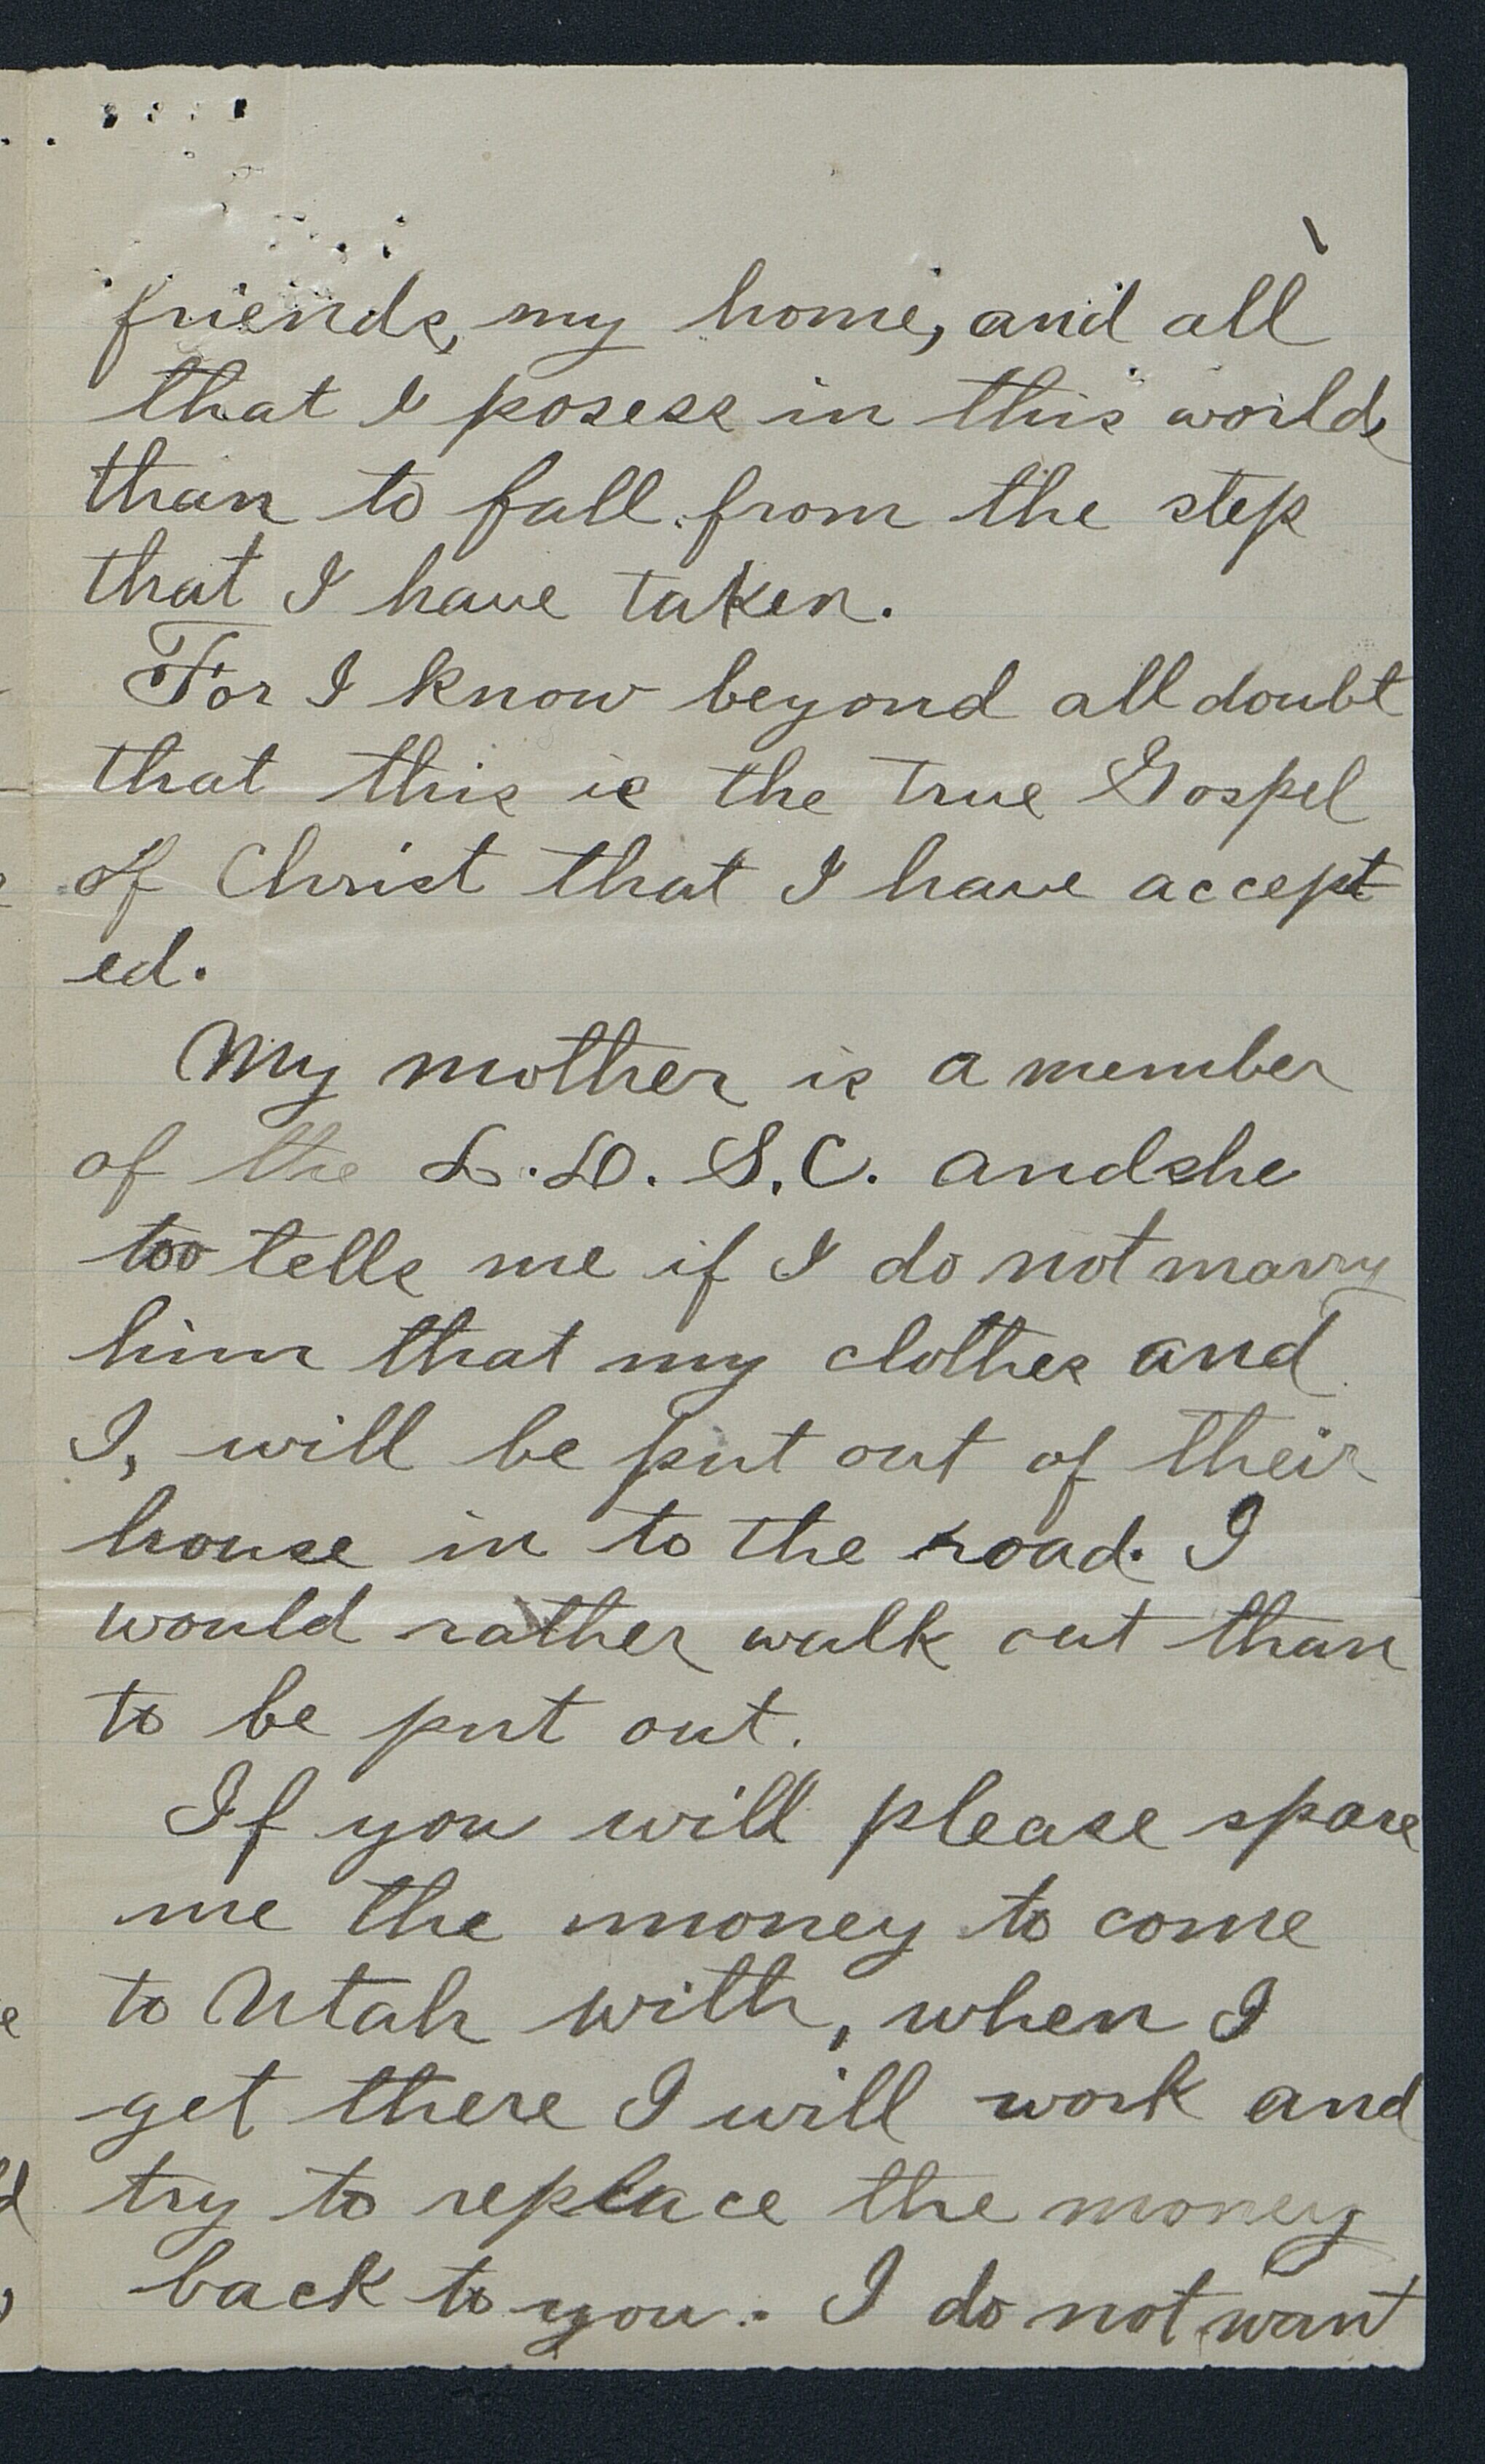 friends, my home, and all
that I posess in this world,
than to fall from the step
that I have taken.
For I know beyond all doubt
that this is the true Gospel
of Christ that I have accept
ed.
My mother is a member
of the L.D.S.C. and she
too tells me if I do not marry
him that my clothes and
I, will be put out of their
house in to the road. I
would rather walk out than
to be put out.
If you will please spare
me the money to come
to Utah with, when I
get there I will work and
try to replace the money
back to you. I do not want